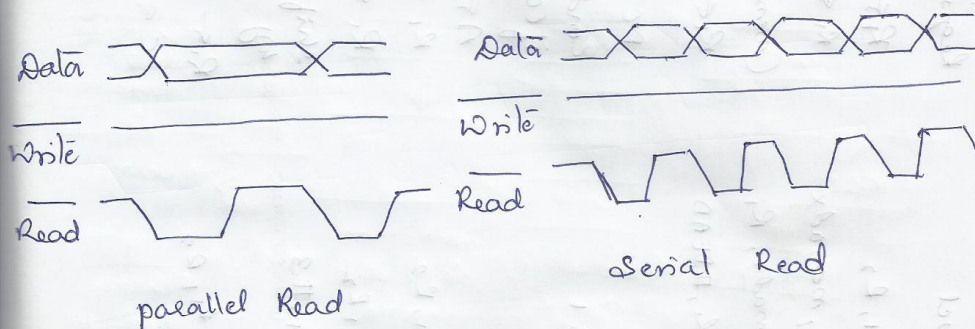 Data
Write
Read
parallel Read
Data
Write
Read
Serial Read